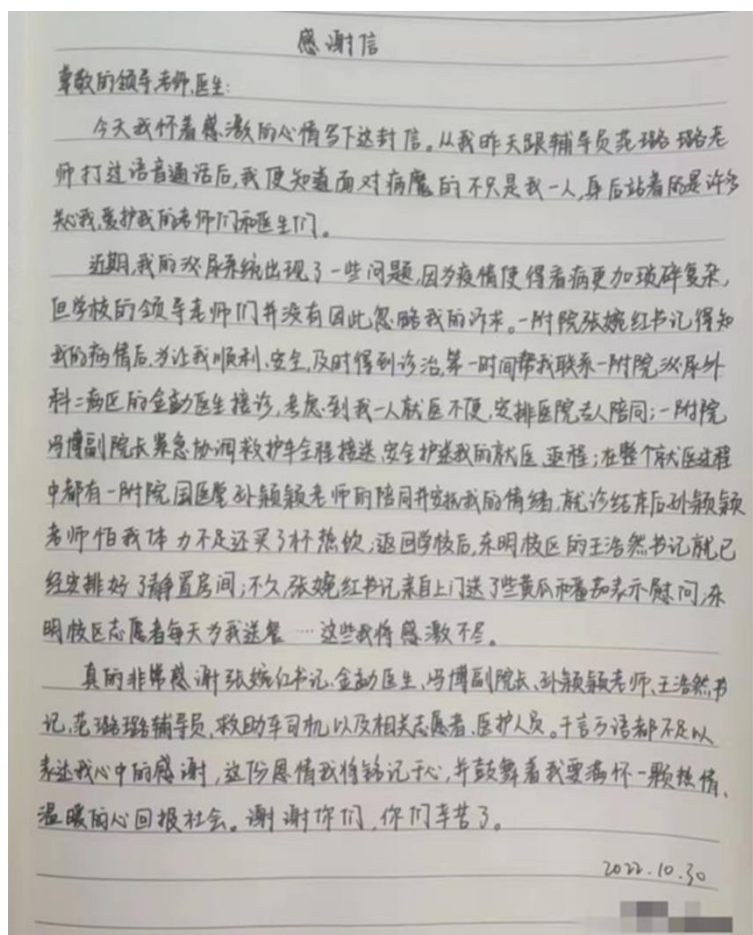 感谢信
尊敬的领导、老师、医生:
今天我怀着感激的心情写下这封信。从我昨天跟辅导员范璐璐老
师打过语音通话后,我便知道面对病魔的不只是我一人,身后站着的是许多
关心我、爱护我的老师们和医生们。
近期,我的泌尿系统出现了一些问题,因为疫情使得看病更加琐碎复杂,
但学校的领导老师们并没有因此忽略我的诉求。一附院张婉红书记得知
我的病情后,为让我顺利、安全、及时得到诊治,第一时间帮我联系一附院泌尿外
科二病区的金勐医生接诊,考虑到我一人就医不便,安排医院专人陪同;一附院
冯博副院长紧急协调救护车全程接送,安全护送我的就医、返程;在整个就医过程
中都有一附院国医堂孙颖颖老师的陪同并安抚我的情绪,就诊结束后孙颖颖
老师怕我体力不足还买了杯热饮;返回学校后,东明校区的王浩然书记就已
经安排好了静置房间;不久,张婉红书记亲自上门送了些黄瓜和番茄表示慰问;东
明校区志愿者每天为我送餐……这些我将感激不尽。
真的非常感谢张婉红书记、金勐医生、冯博副院长、孙颖颖老师、王浩然书
记、范璐璐辅导员、救助车司机以及相关志愿者、医护人员。千言万语都不足以
表达我心中的感谢,这份恩情我将铭记于心,并鼓舞着我要满怀一颗热情、
温暖的心回报社会。谢谢你们,你们辛苦了。
2022.10.30